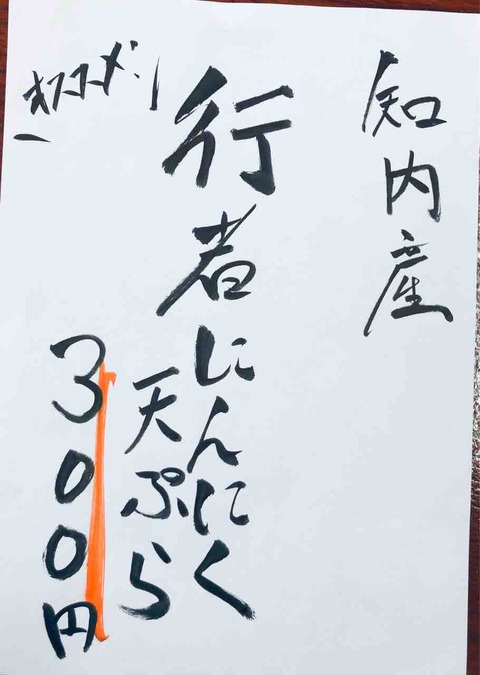 知内産
行者にんにく
天ぷら
300円
オススメ!